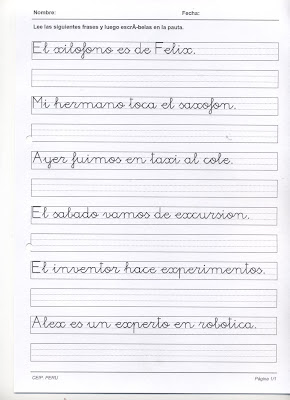 Nombre: Fecha:
Lee las siguientes frases y luego escrÂ-belas en la pauta.
El xilofono es de Felix.
Mi hermano toca el saxofon.
Ayer fuimos en taxi al cole.
El sabado vamos de excursion.
El inventor hace experimentos.
Alex es un experto en robotica.
CEIP. PERU Página 1/1